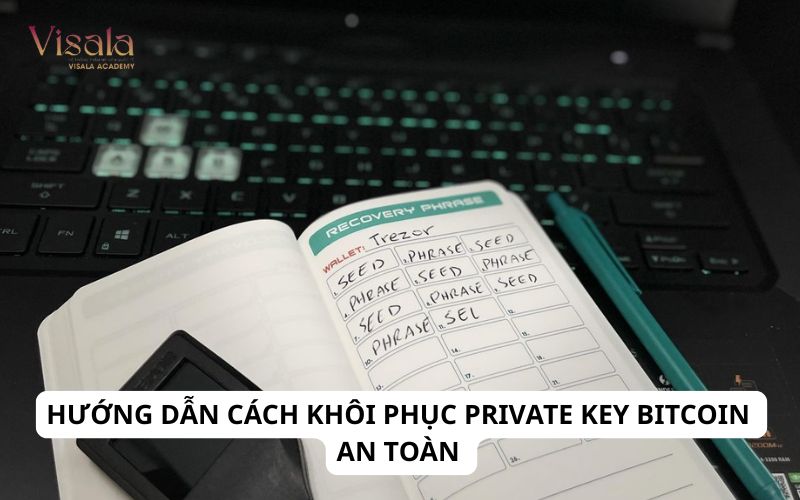 Visala
VISALA ACADEMY
RECOVERY PHRASE
WALLET: Trezor
1. SEED 2. PHRASE 3. SEED
4. PHRASE 5. SEED 6. PHRASE
7. SEED 8. PHRASE 9. SEED
10. PHRASE 11. SEL
14.
17.
CAPS LOCK
SHIFT
Z X C V
CTRL FN ALT
HƯỚNG DẪN CÁCH KHÔI PHỤC PRIVATE KEY BITCOIN
AN TOÀN